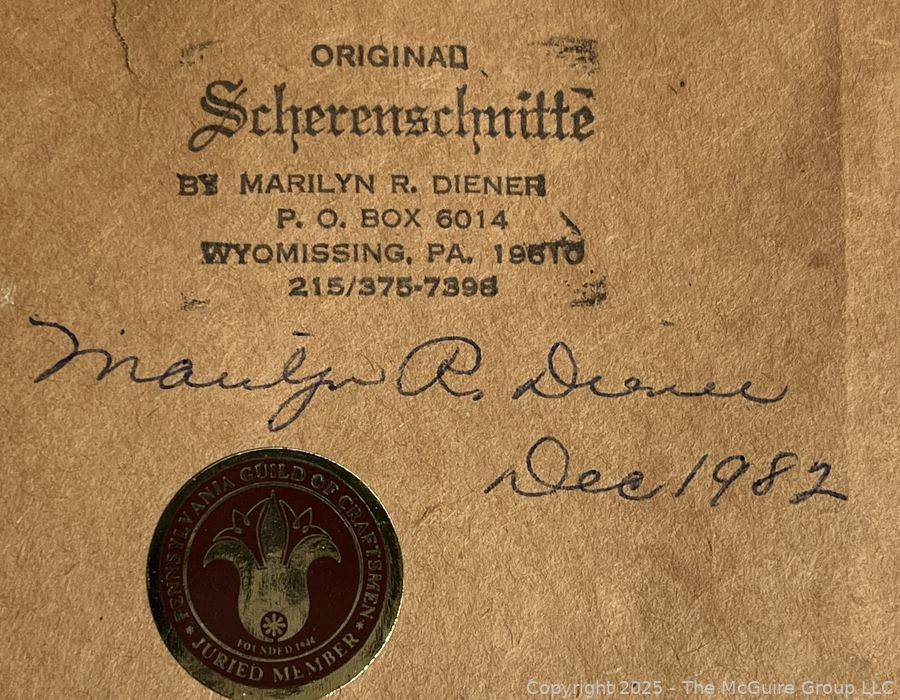 ORIGINAL
Scherenschnitte
BY MARILYN R. DIENER
P. O. BOX 6014
WYOMISSING, PA. 19610
215/375-7398
Marilyn R. Diener
Dec 1982
PENNSYLVANIA GUILD OF CRAFTSMEN
FOUNDED 1944
* JURIED MEMBER *
Copyright 2025 - The McGuire Group LLC